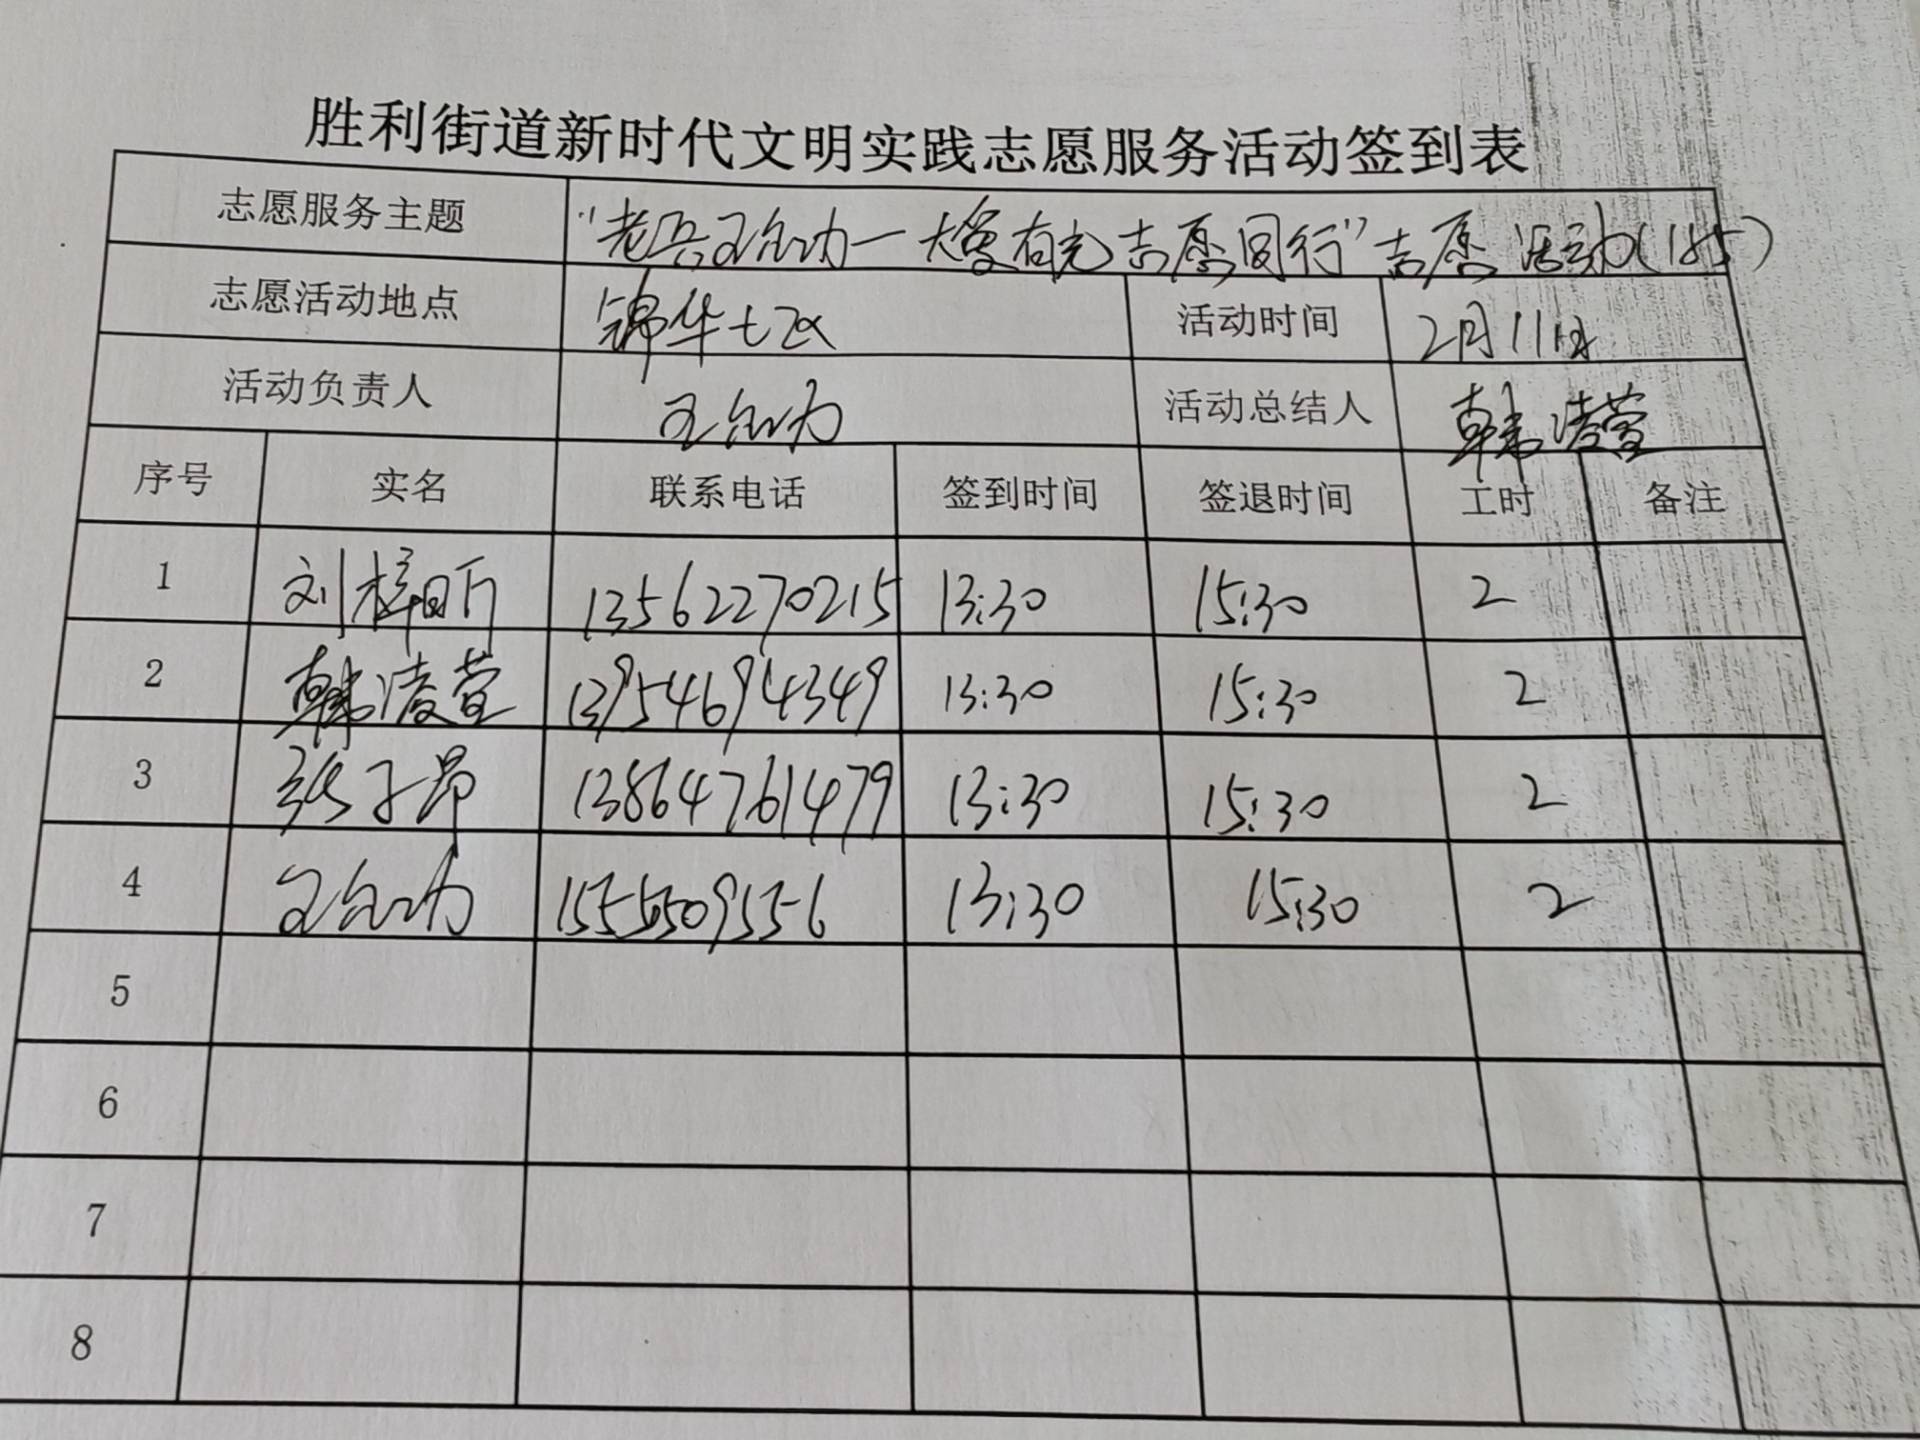 胜利街道新时代文明实践志愿服务活动签到表
志愿服务主题 "老兵王允力一大爱有光 志愿同行"志愿活动(185)
志愿活动地点 锦华七区 活动时间 2月11日
活动负责人 王允力 活动总结人 韩凌萱
序号 实名 联系电话 签到时间 签退时间 工时 备注
1 刘梓昕 13562270215 13:30 15:30 2
2 韩凌萱 13954694349 13:30 15:30 2
3 张子昂 13864761479 13:30 15:30 2
4 王允力 15555095556 13:30 15:30 2
5
6
7
8